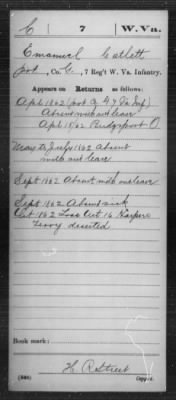 C | 7 | W. Va.
Emanuel Catlett
pvt, Co. G, 7 Reg't W. Va. Infantry.
Appears on Returns as follows:
Apl 1862 (pvt G 4 7 Va Inf)
Absent without leave
Apl 1862 Bridgeport O
May to July 1862 Absent
without leave
Sept 1862 Absent without leave
Sept 1862 Absent sick
Oct 1862 Loss Oct 16 Harpers
Ferry deserted
Book mark:
H. R. Street
(546) Copyist.